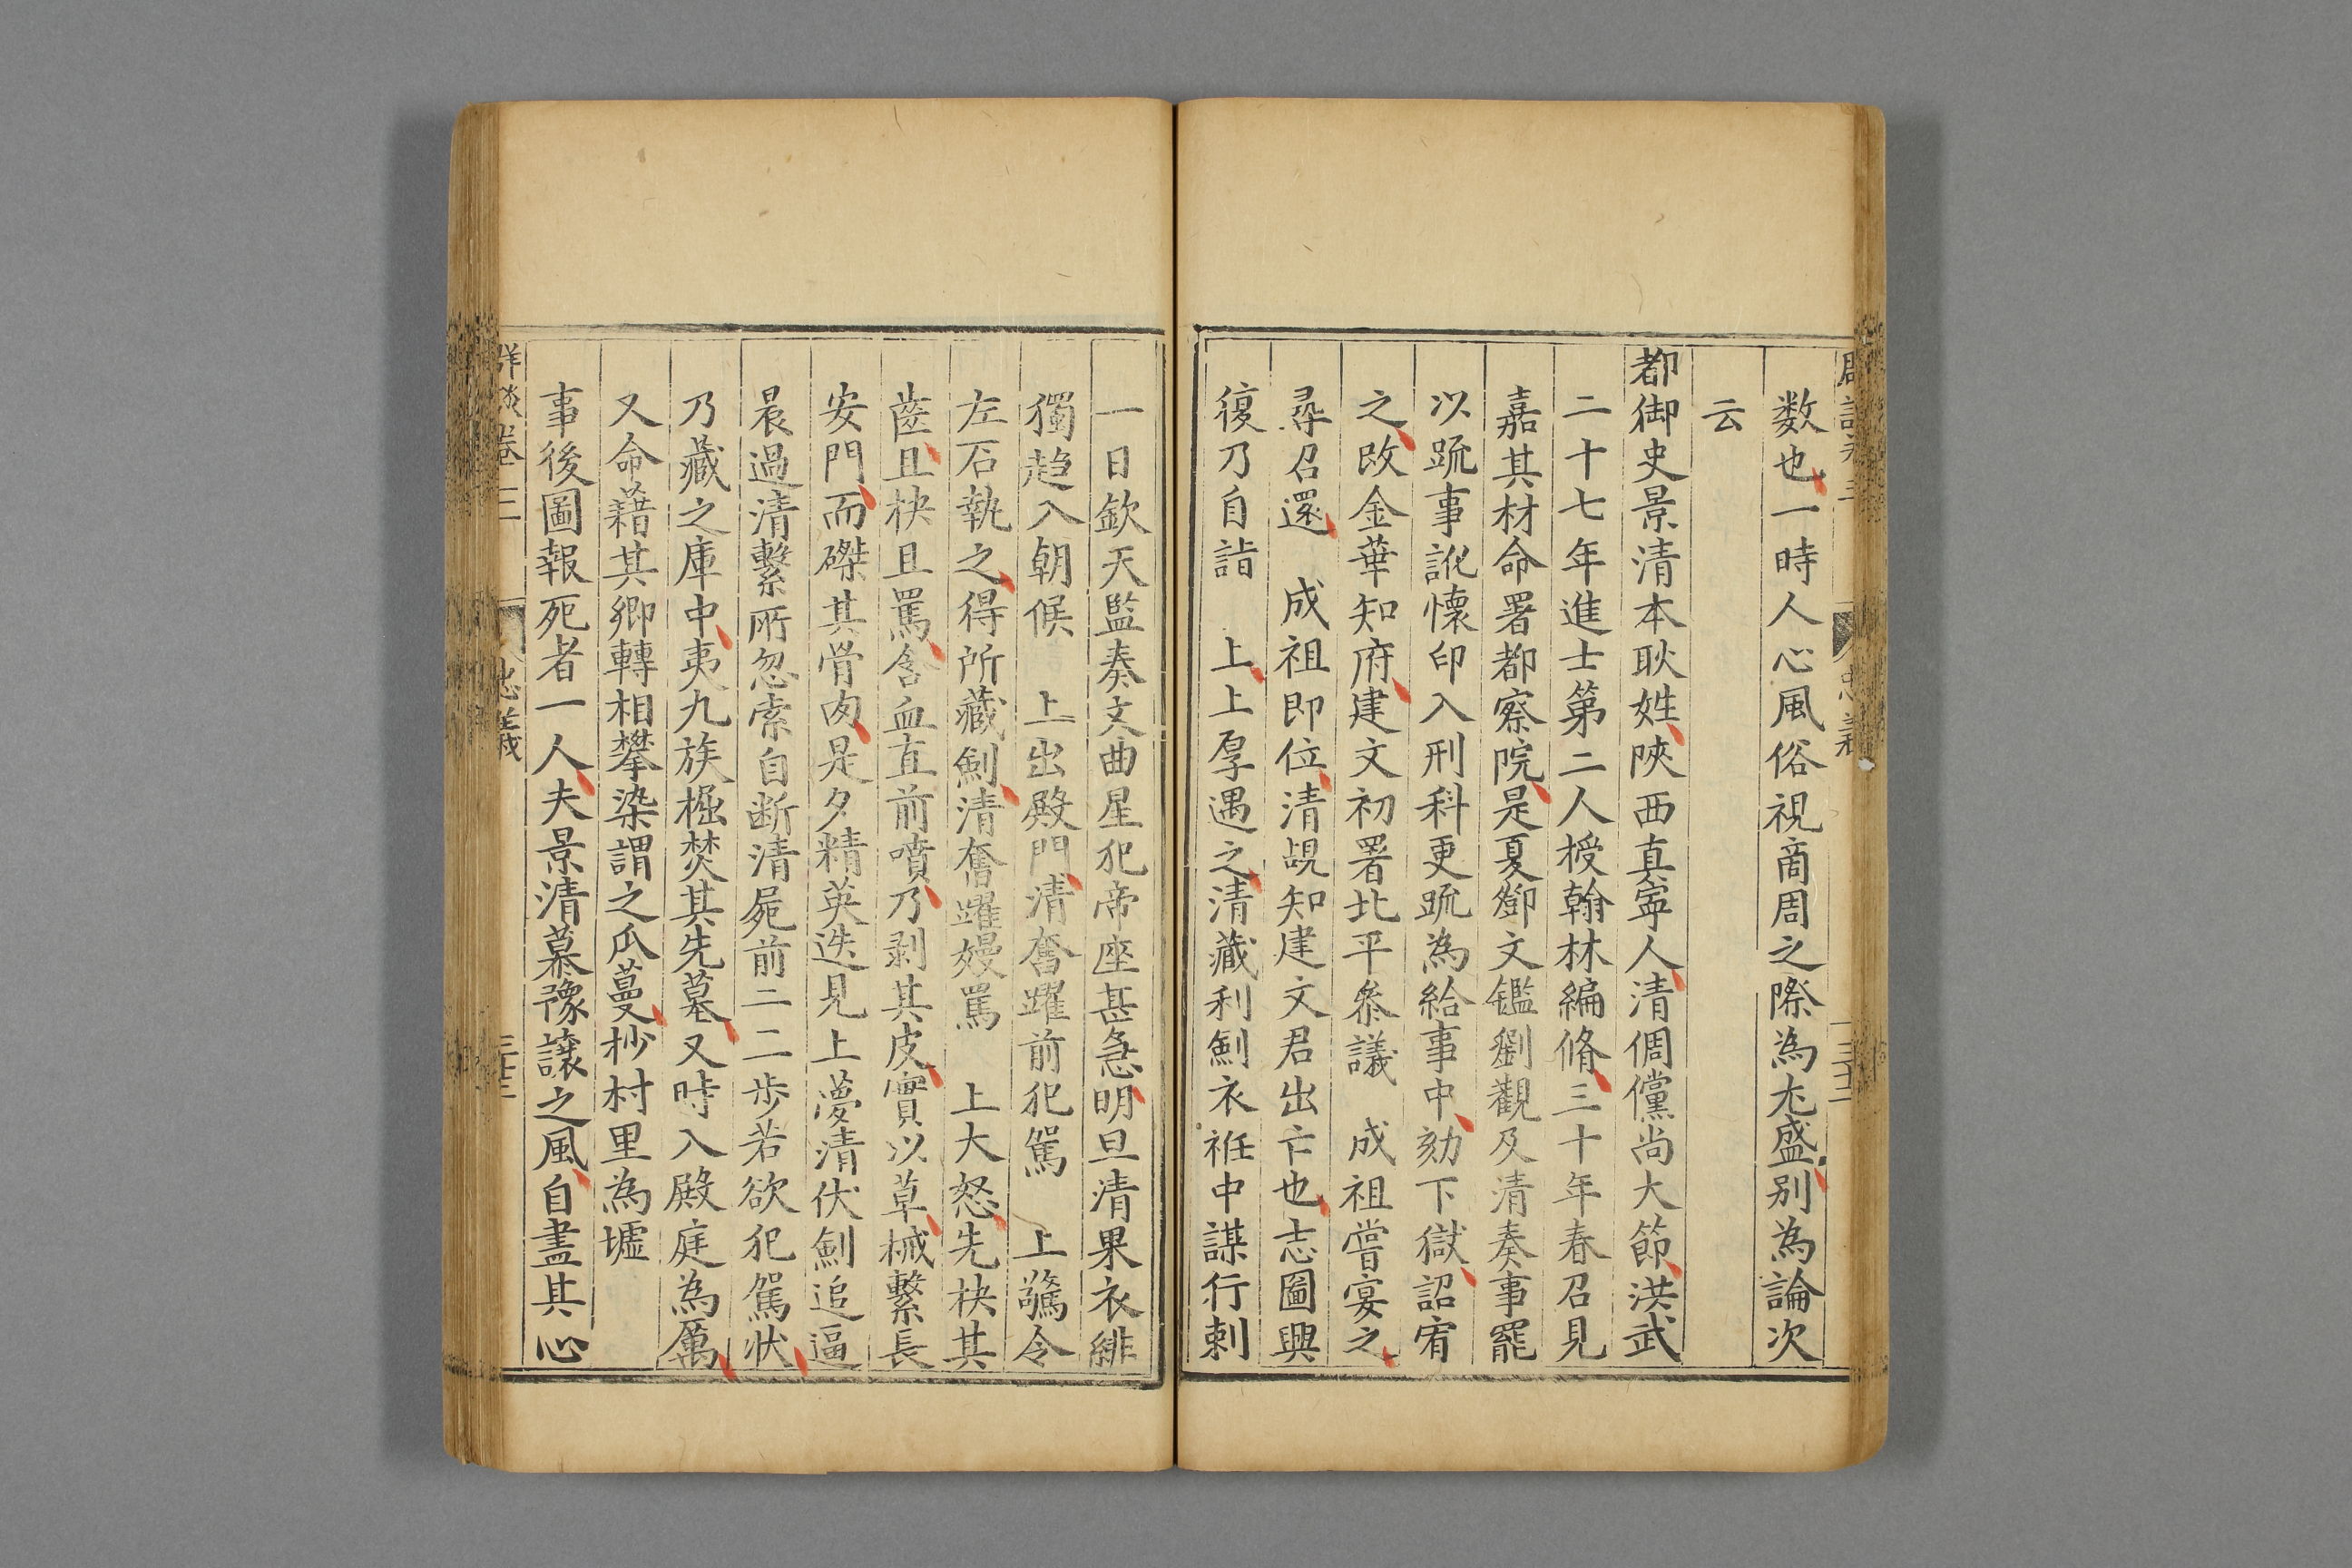 数也一時人心風俗視商周之際為尤盛別為論次
云
都御史景清本耿姓陝西真寧人清倜儻尚大節洪武
二十七年進士第二人授翰林編脩三十年春召見
嘉其材命署都察院是夏鄧文鑑劉觀及清奏事罷
以䟽事訛懷印入刑科更䟽為給事中劾下獄詔宥
之改金華知府建文初署北平叅議　成祖嘗宴之
尋召還　成祖即位清覘知建文君出亡也志圖興
復乃自詣　上上厚遇之清藏利劍衣袵中謀行刺
一日欽天監奏文曲星犯帝座甚急明旦清果衣緋
獨趋入朝候　上出殿門清奮躍前犯駕　上驚令
左右執之得所藏劍清奮躍嫚罵　上大怒先抉其
齒且抉且罵含血直前噴乃剥其皮實以草械繫長
安門而磔其骨肉是夕精英迭見上夢清伏劍追逼
晨過清繫所忽索自断清屍前二二步若欲犯駕状
乃藏之庫中夷九族掘焚其先墓又時入殿庭為厲
又命藉其鄉轉相攀染謂之瓜蔓抄村里為墟
事後圖報死者一人夫景清慕豫讓之風自盡其心
群談卷三
忠義
三十三